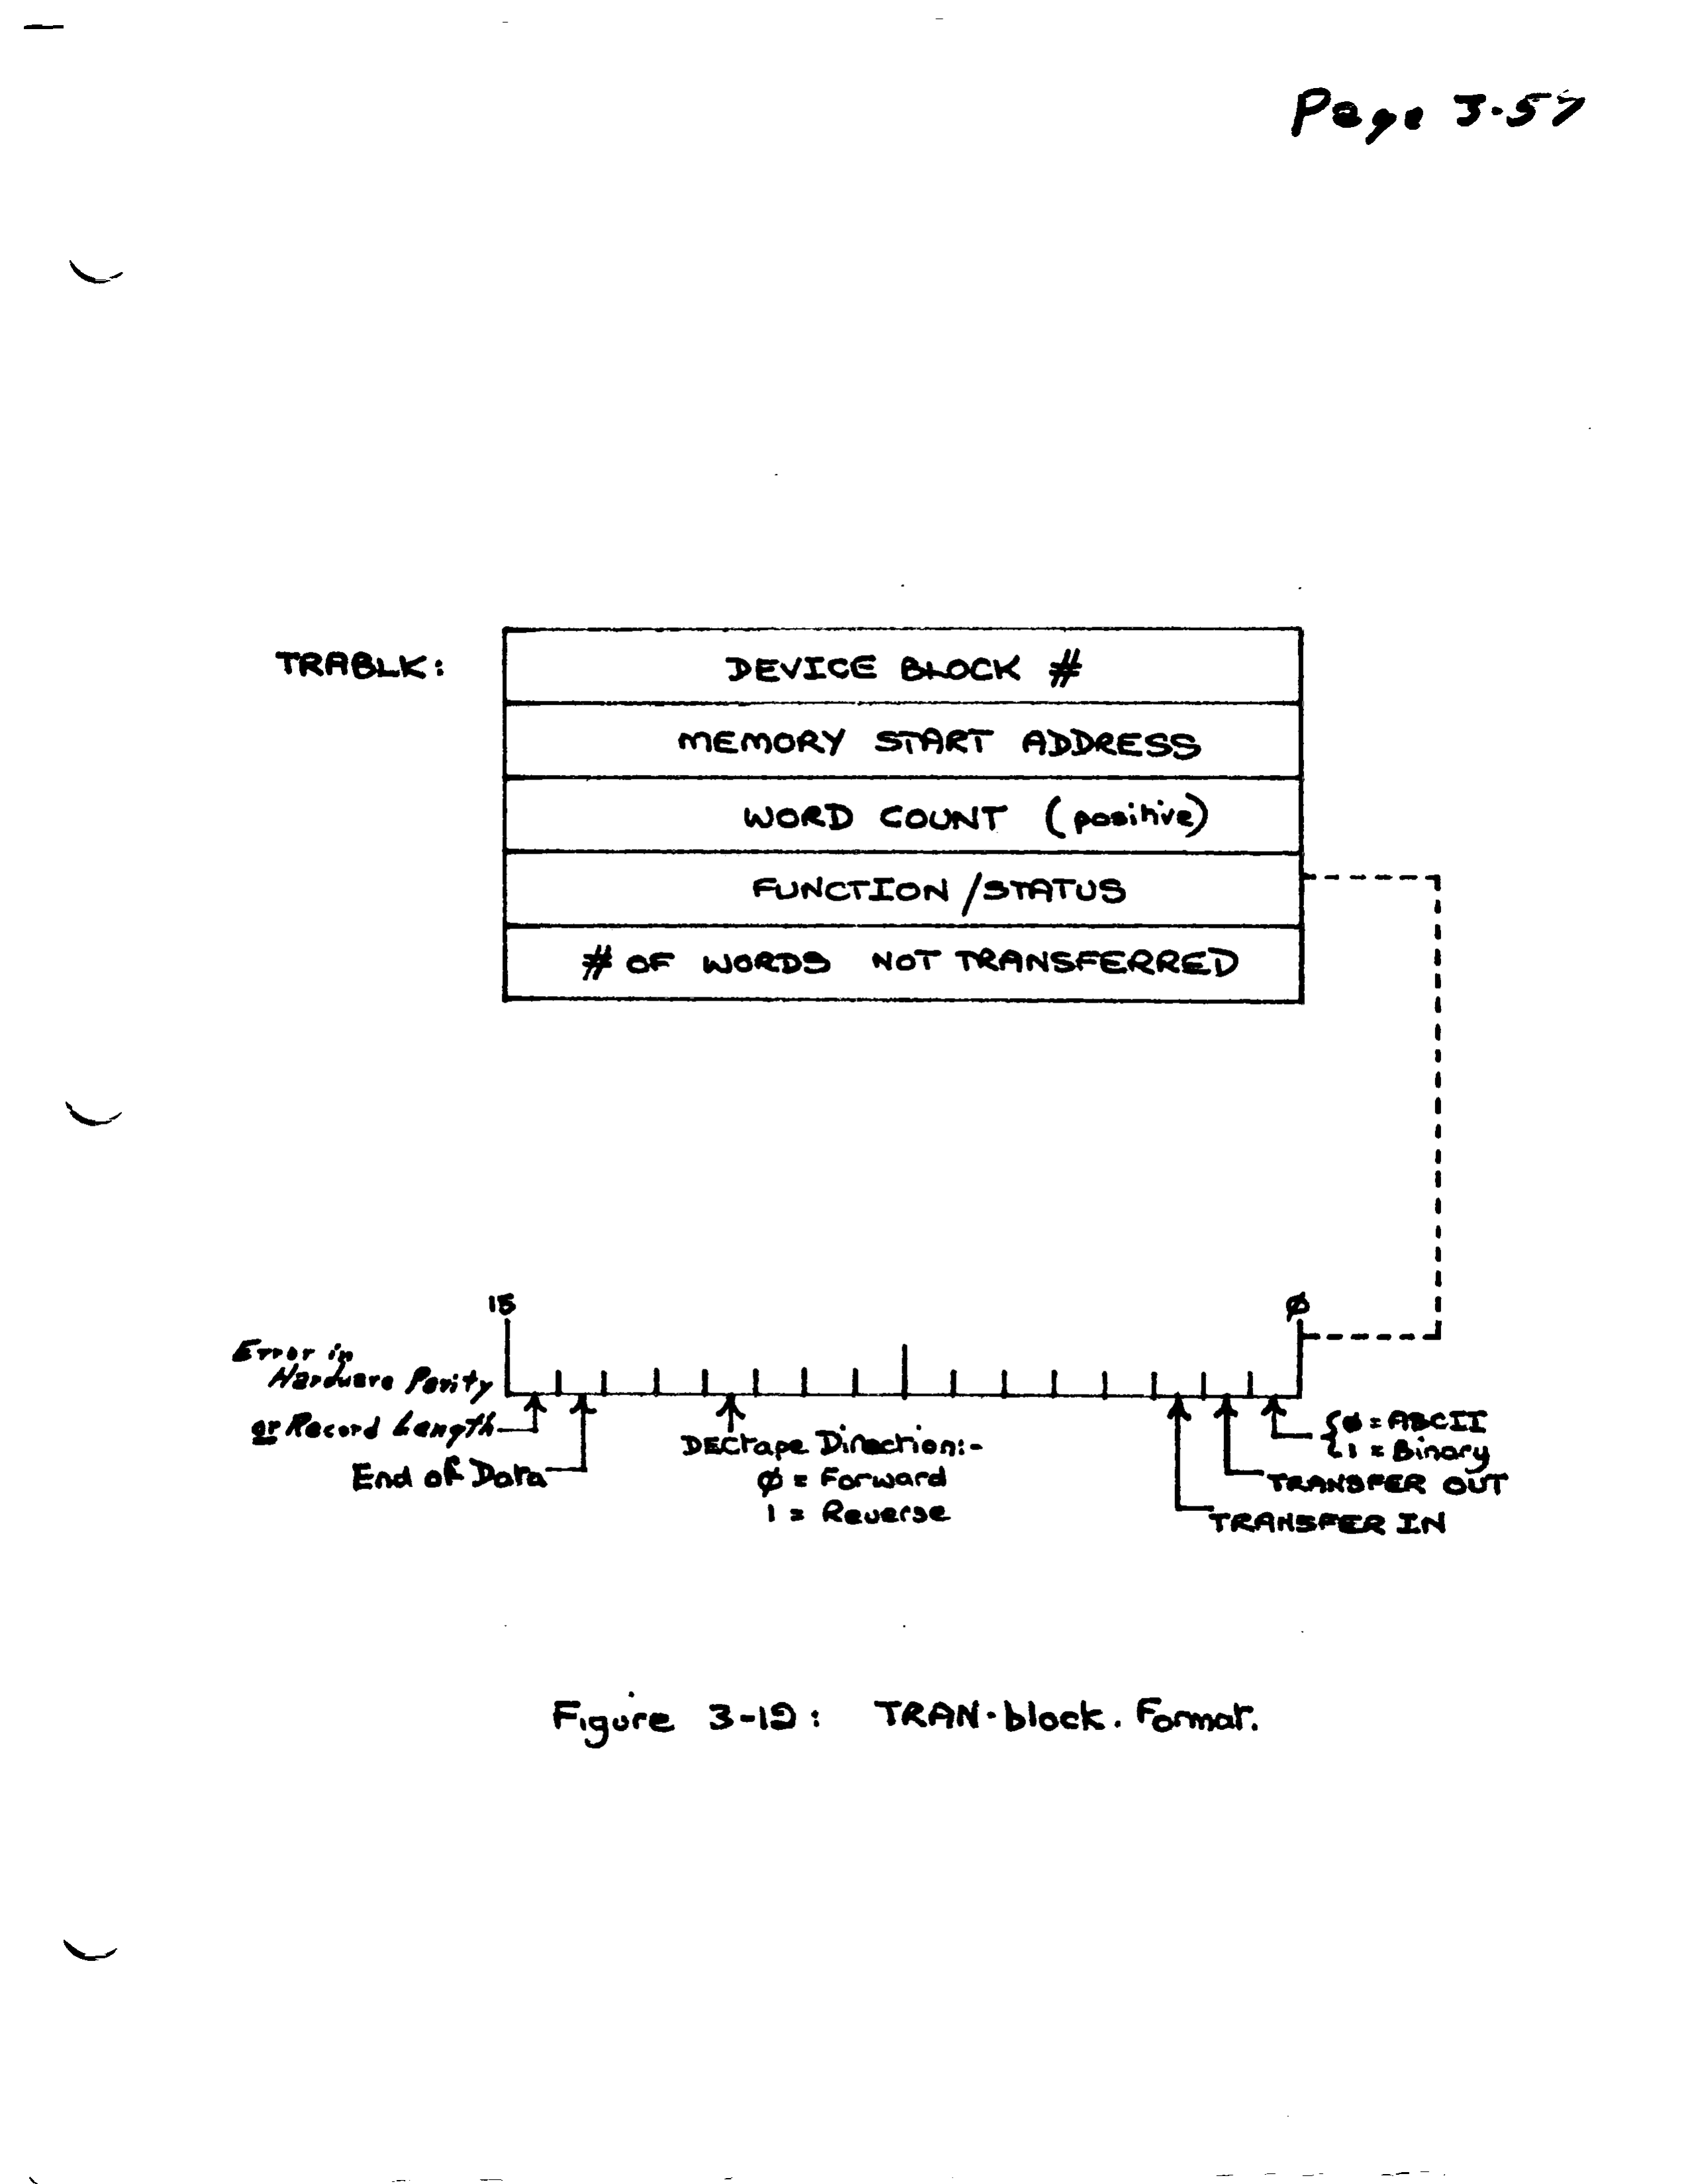 Page 3-57
TRABLK:
DEVICE BLOCK #
MEMORY START ADDRESS
WORD COUNT (positive)
FUNCTION/STATUS
# OF WORDS NOT TRANSFERRED
15
Ø
Error in
Hardware Parity
or Record Length
End of Data
DECtape Direction:-
Ø = Forward
1 = Reverse
{Ø = ASCII
{1 = Binary
TRANSFER OUT
TRANSFER IN
Figure 3-19: TRAN-block. Format.